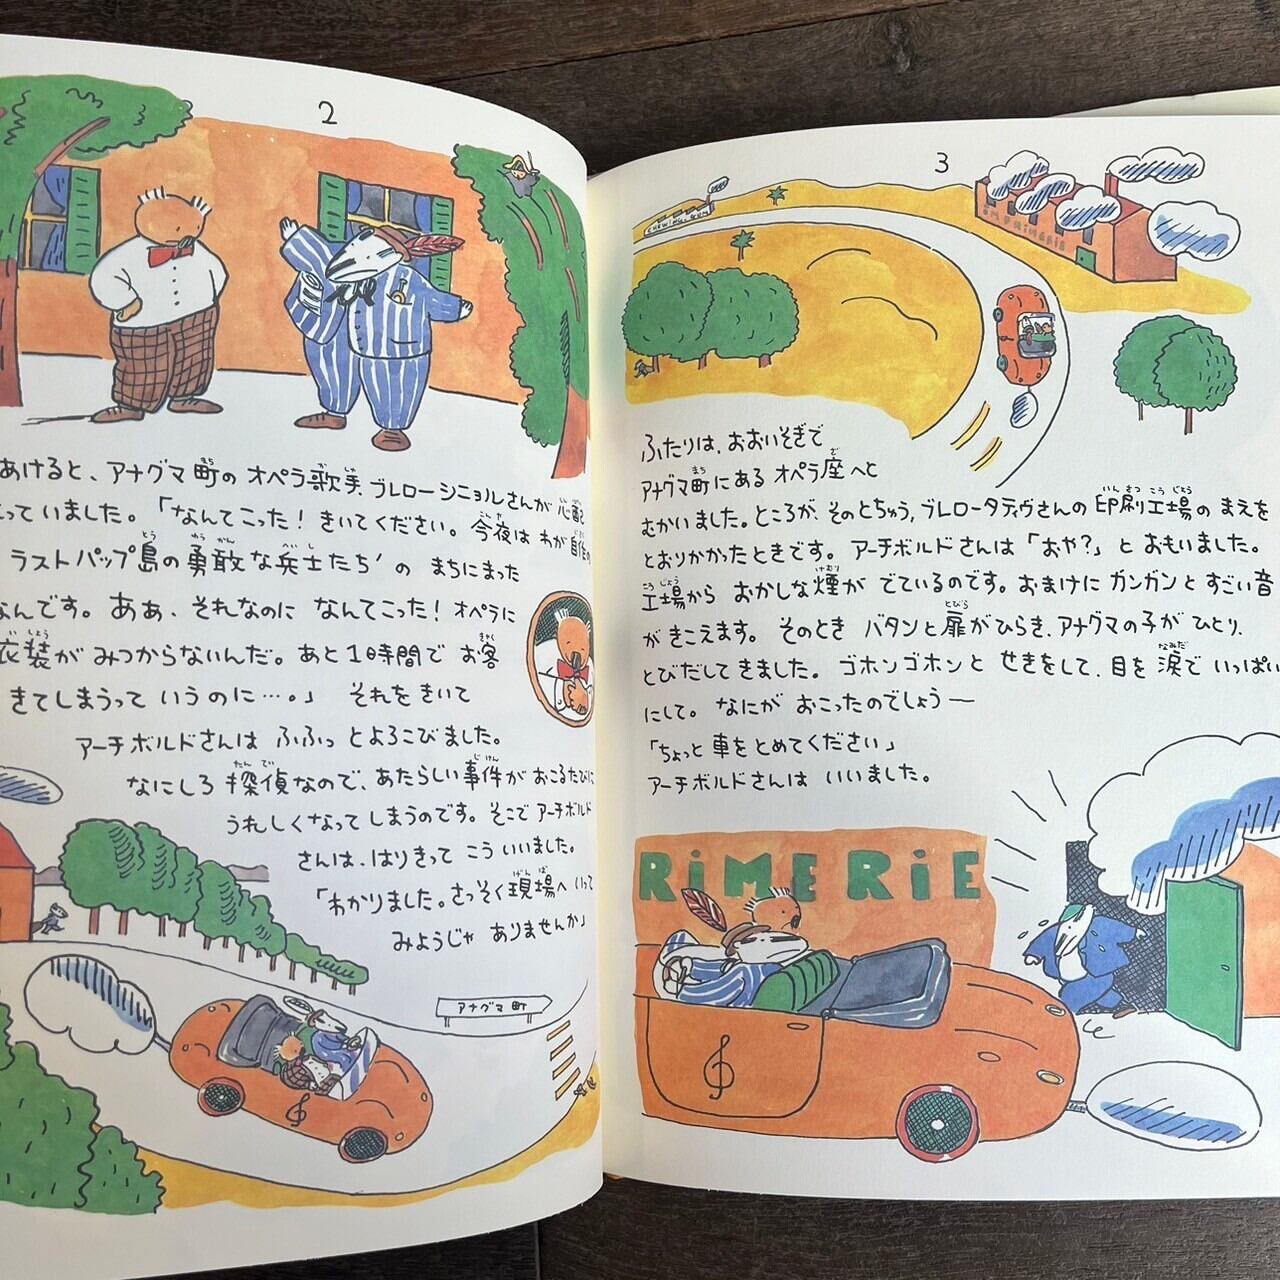 2
あけると、アナグマ町のオペラ歌手、ブレローシニョルさんが心配
っていました。「なんてこった！きいてください。今夜はわが自作の
ラストパップ島の勇敢な兵士たち'の まちにまった
なんです。ああ、それなのに なんてこった！オペラに
衣装が みつからないんだ。あと1時間で お客
きてしまうって いうのに…。」 それをきいて
アーチボルドさんは ふふっ とよろこびました。
なにしろ 探偵なので、あたらしい事件が おこるたびに
うれしくなって しまうのです。そこで アーチボルド
さんは、はりきって こう いいました。
「わかりました。さっそく現場へ いって
みようじゃ ありませんか」
アナグマ町
3
CHEWING-GUM
RIMERIE
ふたりは、おおいそぎで
アナグマ町にある オペラ座へと
むかいました。ところが、そのとちゅう、ブレロータティヴさんの 印刷工場の まえを
とおりかかったときです。 アーチボルドさんは「おや？」と おもいました。
工場から おかしな煙が でているのです。おまけに ガンガンと すごい音
がきこえます。 そのとき バタンと 扉がひらき、アナグマの子が ひとり、
とびだして きました。 ゴホンゴホンと せきをして、目を 涙で いっぱい
にして。 なにが おこったのでしょう—
「ちょっと 車をとめてください」
アーチボルドさんは いいました。
RiMERiE